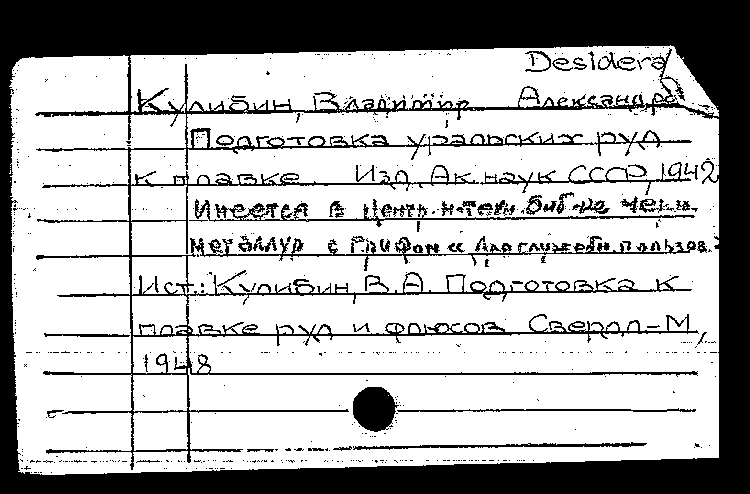 Desidera
Кулибин, Владимир Александро
Подготовка уральских руд
к плавке. Изд. Ак. наук СССР, 1942
Имеется в Центр. н-техн. биб-ке
металлур с грифом « Для служебн. пользов.
Ист.: Кулибин, В.А. Подготовка к
плавке руд и флюсов Свердл-М,
1948